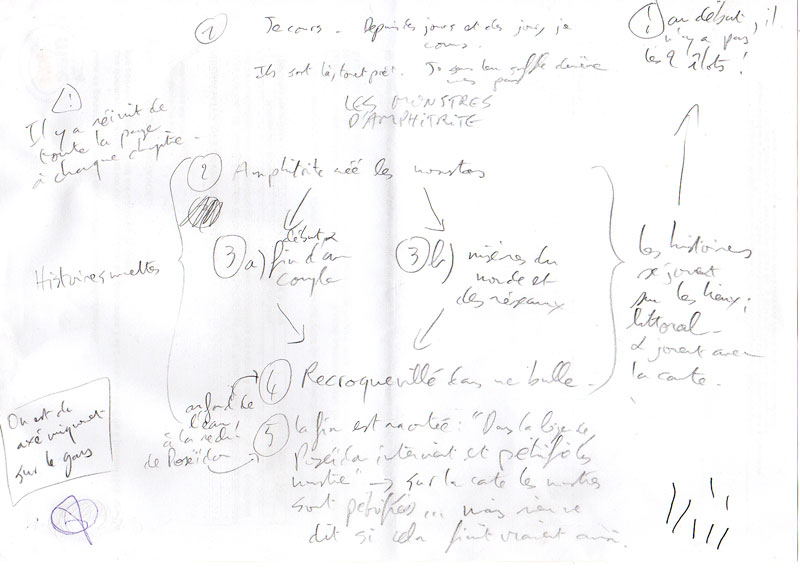 1 Je cours. Depuis des jours et des jours, je
cours.
Ils sont là, tout près. Je sens leur souffle derrière
mes pas
LES MONSTRES
D'AMPHITRITE
! au début, il
n'y a pas
les 2 îlots !
!
Il y a réécrit de
toute la page
à chaque chapitre.
2 Amphitrite créé les monstres
Histoires muettes
3 a) début &
fin d'un
couple
3 b) misères du
monde et
des réseaux
les histoires
se jouent
sur les lieux ;
littoral
& jouent avec
la carte.
4 Recroquevillé dans une bulle.
au fond de
l'eau !
à la
de Poseïdon
5 la fin est racontée : "Dans la
Poseïdon intervient et pétrifie les
" → sur la carte les monstres
sont pétrifiés... mais rien ne
dit si cela finit vraiment ainsi.
On est de
axé uniquement
sur le gars
A